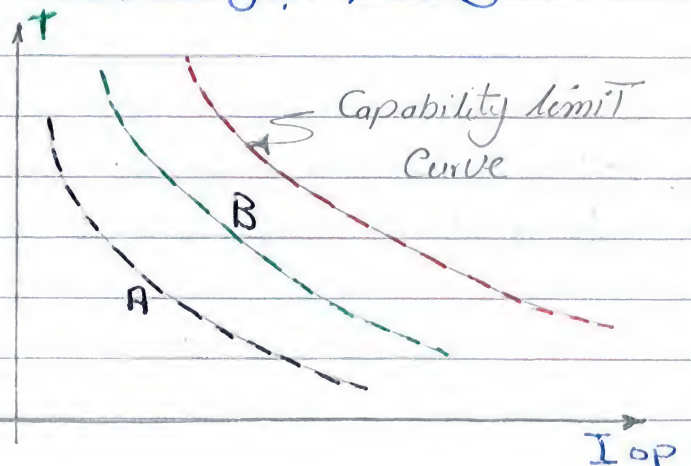 t
Capability limit
Curve
B
A
I op